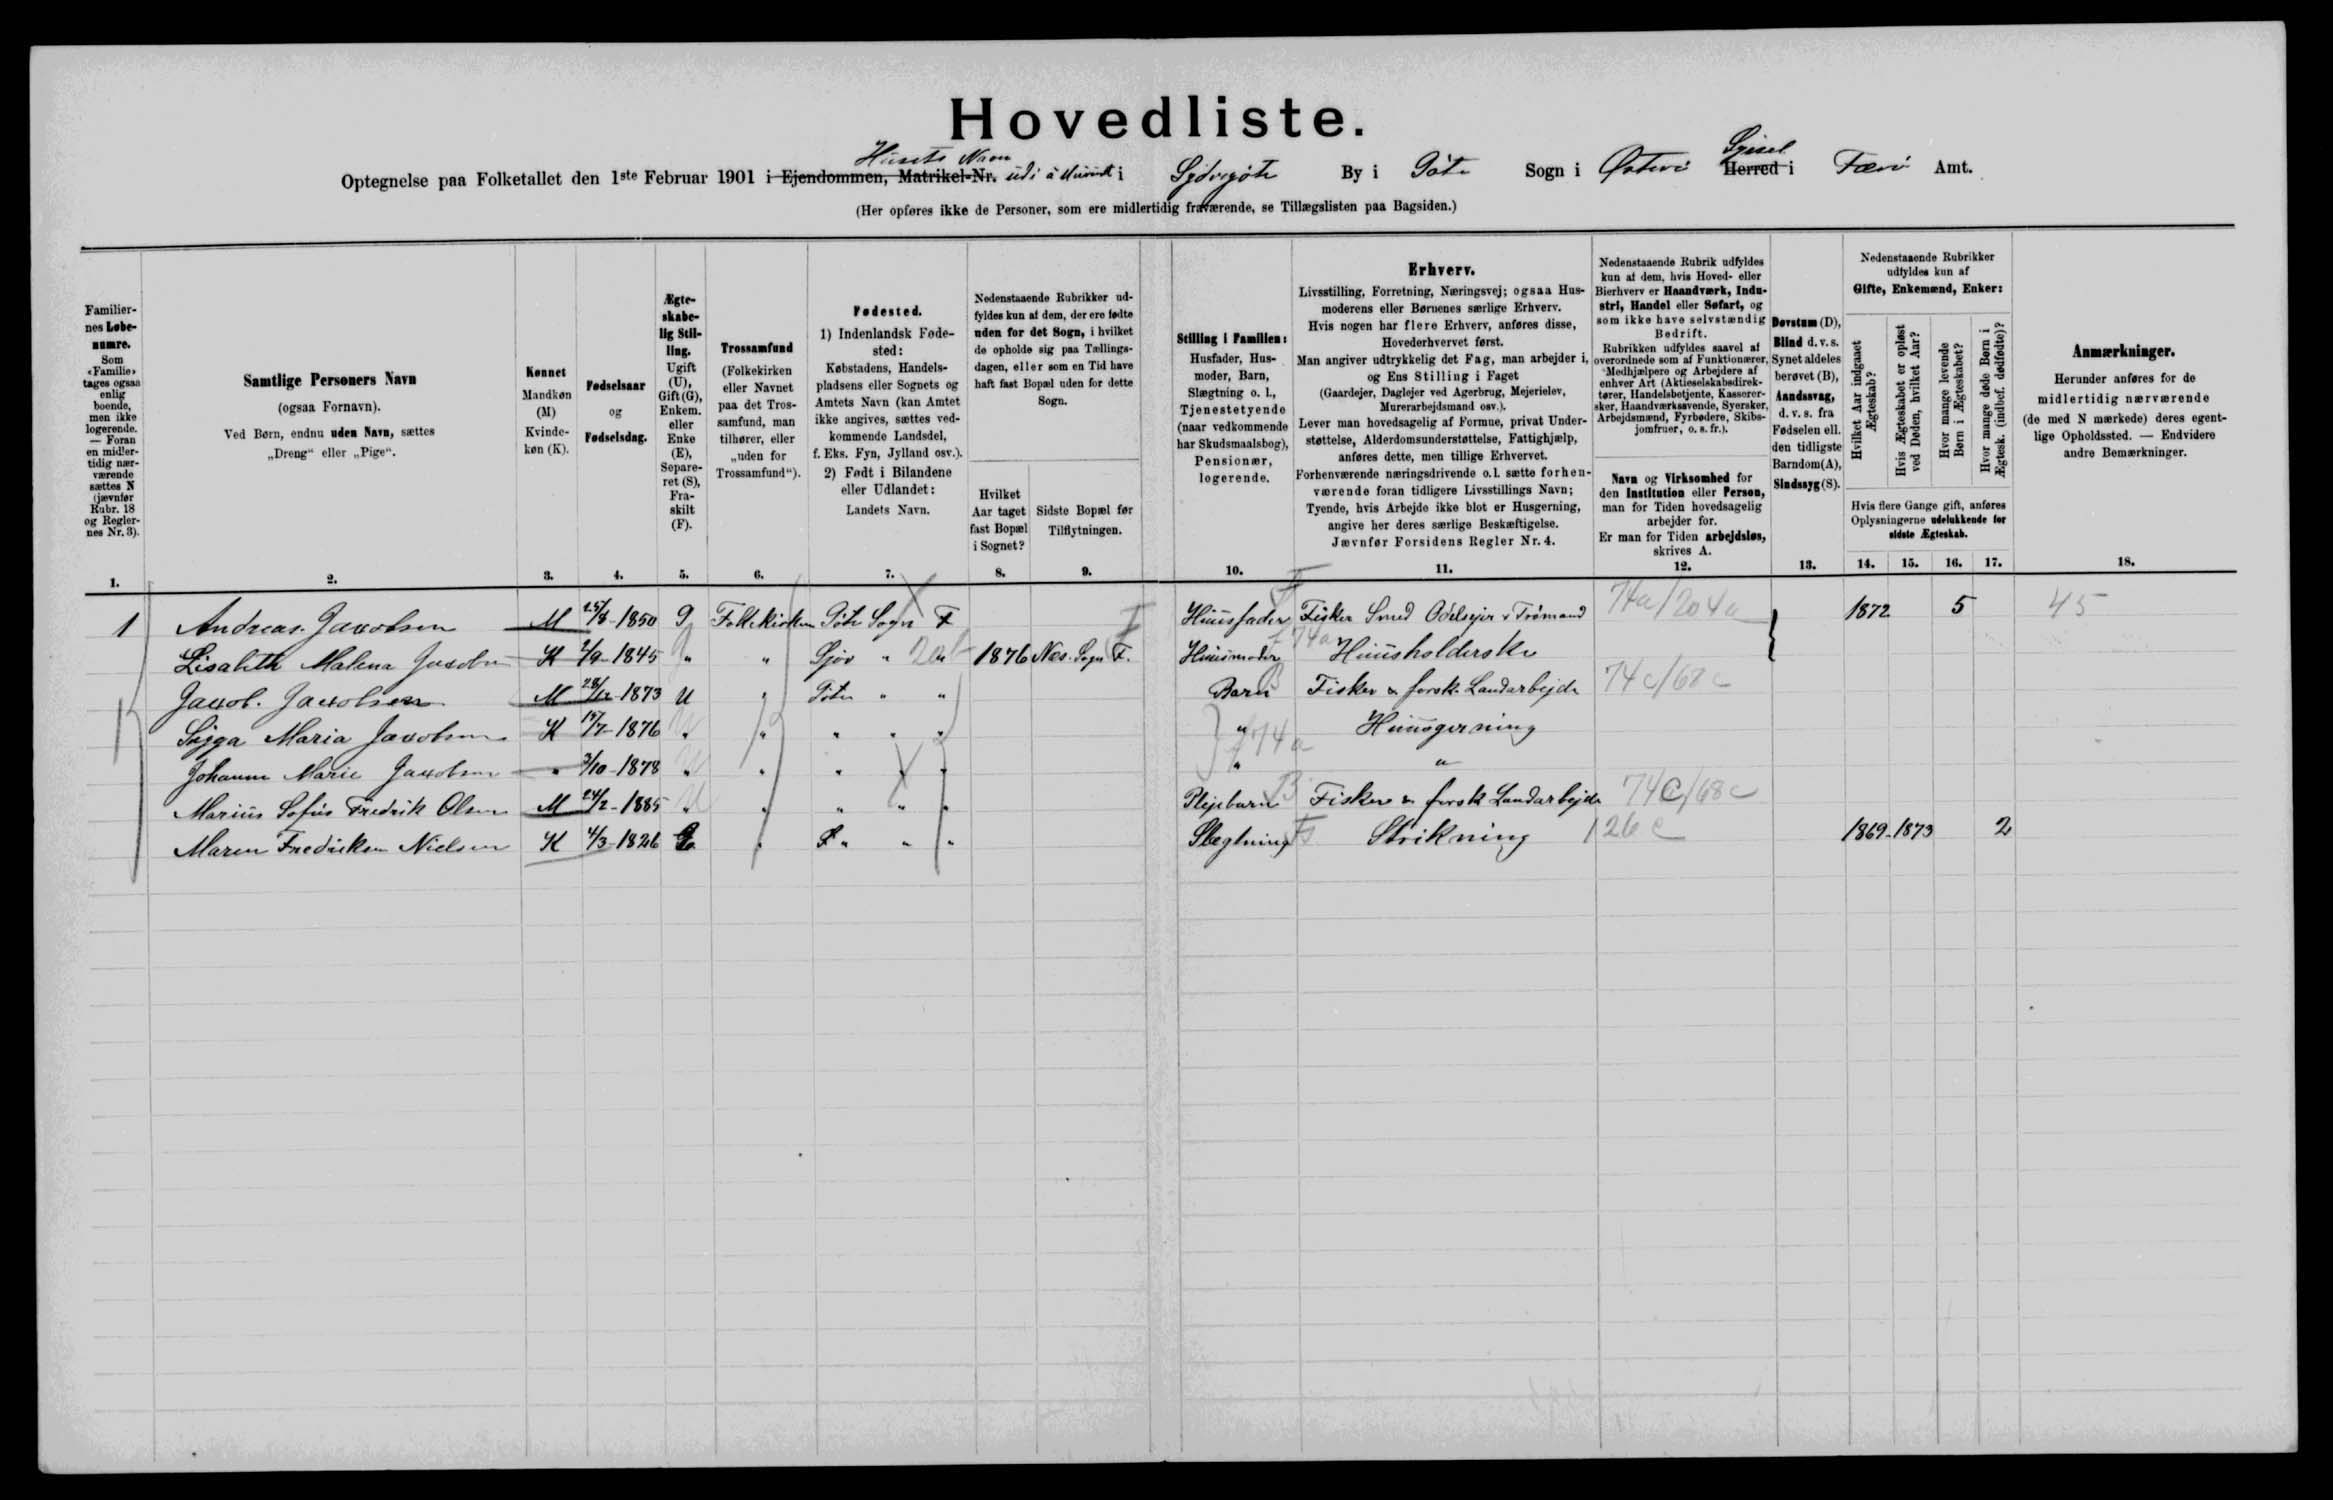 Hovedliste.
Husets Navn
Sysel
Optegnelse paa Folketallet den 1ste Februar 1901 i Ejendommen, Matrikel-Nr. udi á i Sydregøte By i Gøte Sogn i Østerø Herred i Færø Amt.
(Her opføres ikke de Personer, som ere midlertidig fraværende, se Tillægslisten paa Bagsiden.)
Familiernes Løbenumre.
Som «Familie» tages ogsaa enlig boende, men ikke logerende. — Foran en midlertidig nærværende sættes N (jævnfør Rubr. 18 og Reglernes Nr. 3).
Samtlige Personers Navn
(ogsaa Fornavn).
Ved Børn, endnu uden Navn, sættes
„Dreng“ eller „Pige“.
Kønnet
Mandkøn (M)
Kvindekøn (K).
Fødselsaar
og
Fødselsdag.
Ægteskabelig Stilling.
Ugift (U), Gift (G), Enkem. eller Enke (E), Separeret (S), Fraskilt (F).
Trossamfund
(Folkekirken eller Navnet paa det Trossamfund, man tilhører, eller „uden for Trossamfund“).
Fødested.
1) Indenlandsk Fødested:
Købstadens, Handelspladsens eller Sognets og Amtets Navn (kan Amtet ikke angives, sættes vedkommende Landsdel, f. Eks. Fyn, Jylland osv.).
2) Født i Bilandene eller Udlandet:
Landets Navn.
Nedenstaaende Rubrikker udfyldes kun af dem, der ere fødte uden for det Sogn, i hvilket de opholde sig paa Tællingsdagen, eller som en Tid have haft fast Bopæl uden for dette Sogn.
Hvilket Aar taget fast Bopæl i Sognet?
Sidste Bopæl før Tilflytningen.
Stilling i Familien:
Husfader, Husmoder, Barn, Slægtning o. l., Tjenestetyende (naar vedkommende har Skudsmaalsbog), Pensionær, logerende.
Erhverv.
Livsstilling, Forretning, Næringsvej; ogsaa Husmoderens eller Børnenes særlige Erhverv.
Hvis nogen har flere Erhverv, anføres disse, Hovederhvervet først.
Man angiver udtrykkelig det Fag, man arbejder i, og Ens Stilling i Faget
(Gaardejer, Daglejer ved Agerbrug, Mejerielev, Murerarbejdsmand osv.).
Lever man hovedsagelig af Formue, privat Understøttelse, Alderdomsunderstøttelse, Fattighjælp, anføres dette, men tillige Erhvervet.
Forhenværende næringsdrivende o. l. sætte forhenværende foran tidligere Livsstillings Navn;
Tyende, hvis Arbejde ikke blot er Husgerning, angive her deres særlige Beskæftigelse.
Jævnfør Forsidens Regler Nr. 4.
Nedenstaaende Rubrik udfyldes kun af dem, hvis Hoved- eller Bierhverv er Haandværk, Industri, Handel eller Søfart, og som ikke have selvstændig Bedrift.
Rubrikken udfyldes saavel af overordnede som af Funktionærer, Medhjælpere og Arbejdere af enhver Art (Aktieselskabsdirektører, Handelsbetjente, Kasserersker, Haandværkssvende, Syersker, Arbejdsmænd, Fyrbødere, Skibsjomfruer, o. s. fr.).
Navn og Virksomhed for den Institution eller Person, man for Tiden hovedsagelig arbejder for.
Er man for Tiden arbejdsløs, skrives A.
Døvstum (D), Blind d. v. s. Synet aldeles berøvet (B), Aandssvag, d. v. s. fra Fødselen ell. den tidligste Barndom (A), Sindssyg (S).
Nedenstaaende Rubrikker udfyldes kun af
Gifte, Enkemænd, Enker:
Hvilket Aar indgaaet Ægteskab?
Hvis Ægteskabet er opløst ved Døden, hvilket Aar?
Hvor mange levende Børn i Ægteskabet?
Hvor mange døde Børn i Ægtesk. (indbef. dødfødte)?
Hvis flere Gange gift, anføres Oplysningerne udelukkende for sidste Ægteskab.
Anmærkninger.
Herunder anføres for de midlertidig nærværende (de med N mærkede) deres egentlige Opholdssted. — Endvidere andre Bemærkninger.
1. 2. 3. 4. 5. 6. 7. 8. 9. 10. 11. 12. 13. 14. 15. 16. 17. 18.
1 Andreas Jacobsen M 25/8-1850 G Folkekirken Gøte Sogn F Huusfader Fisker Smed Odelsejer Trømand 74a/204a 1872 5 45
Lisabeth Malena Jacobsen K 2/9-1845 " " Sjov " 20b " 1876 Nes. Sogn F. Huusmoder 74a Huusholderske
Jacob. Jacobsen M 28/12-1873 U " Gøte " " Barn B Fisker & forsk. Landarbejde 74c/68c
Sigga Maria Jacobsen K 15/7-1876 " " " " " " 74a Huusgerning
Johanne Marie Jacobsen " 3/10-1878 " " " " " " "
Marius Sofus Fredrik Olsen M 24/2-1885 " " " " " Plejebarn B Fisker & forsk Landarbejde 74c/68c
Maren Fredriksen Nielsen K 4/3-1826 " " " " Slegtning Strikning 126c 1869-1873 2